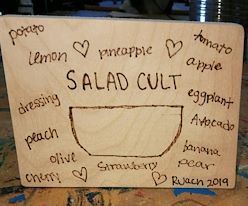 potato
tomato
lemon
pineapple
apple
SALAD CULT
dressing
eggplant
Avocado
peach
banana
olive
Strawberry
pear
cherry
RWach 2019